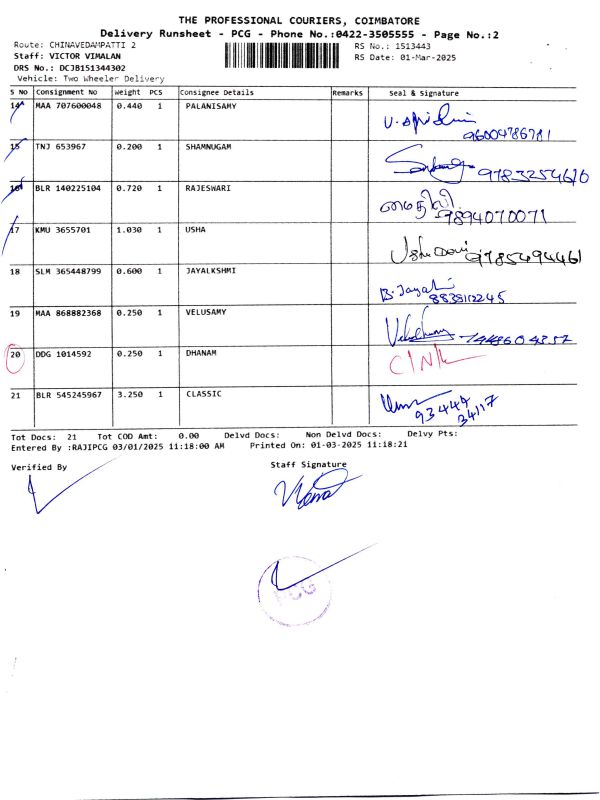 THE PROFESSIONAL COURIERS, COIMBATORE
Delivery Runsheet - PCG - Phone No.:0422-3505555 - Page No.:2
Route: CHINAVEDAMPATTI 2
RS No.: 1513443
Staff: VICTOR VIMALAN
RS Date: 01-Mar-2025
DRS No.: DCJB151344302
Vehicle: Two Wheeler Delivery
S No Consignment No Weight PCS Consignee Details Remarks Seal & Signature
14 MAA 707600048 0.440 1 PALANISAMY
96004786781
15 TNJ 653967 0.200 1 SHAMNUGAM
9783254610
16 BLR 140225104 0.720 1 RAJESWARI
மைதிலி
7894070071
17 KMU 3655701 1.030 1 USHA
Usha 9785494461
18 SLM 365448799 0.600 1 JAYALKSHMI
B. Jayah
8838112245
19 MAA 868882368 0.250 1 VELUSAMY
20 DDG 1014592 0.250 1 DHANAM
21 BLR 545245967 3.250 1 CLASSIC
93444
34117
Tot Docs: 21 Tot COD Amt: 0.00 Delvd Docs: Non Delvd Docs: Delvy Pts:
Entered By :RAJIPCG 03/01/2025 11:18:00 AM Printed On: 01-03-2025 11:18:21
Verified By
Staff Signature
PCG